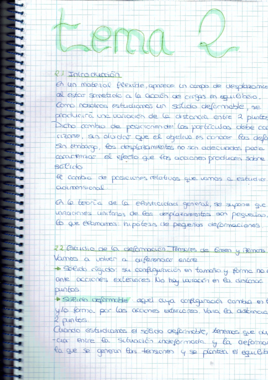 tema 2
2.1 Introducción
En un material flexible, aparece un campo de desplazamie
al estar sometido a la acción de cargas en equilibrio.
Como nosotros estudiamos un sólido deformable, se
producirá una variación de la distancia entre 2 puntos
Dicho cambio de posiciones de las partículas, debe ca
sin olvidar que el objetivo es conocer las defo
Sin embargo, los desplazamientos no son adecuados para
caracterizar el efecto que las acciones producen sobre
sólido.
El cambio de posiciones relativas que vamos a estudiar
En la teoría de la elasticidad general, se supone que
variaciones unitarias de los desplazamientos son pequeñas
lo que llamamos hipótesis de pequeñas deformaciones.
2.2 Estudio de la deformación. Tensores de Green y
Vamos a volver a diferenciar entre:
→ Sólido rígido: su configuración en tamaño y forma no
ante acciones exteriores. No hay variación en la distancia
puntos.
→ Sólido deformable: aquel cuya configuración cambia en t
y/o forma, por las acciones exteriores. Varía la distancia
2 puntos.
Cuando estudiamos el sólido deformable, tenemos que
cia entre la situación indeformada y la deformad
la que se generan las tensiones y se plantea el equilib